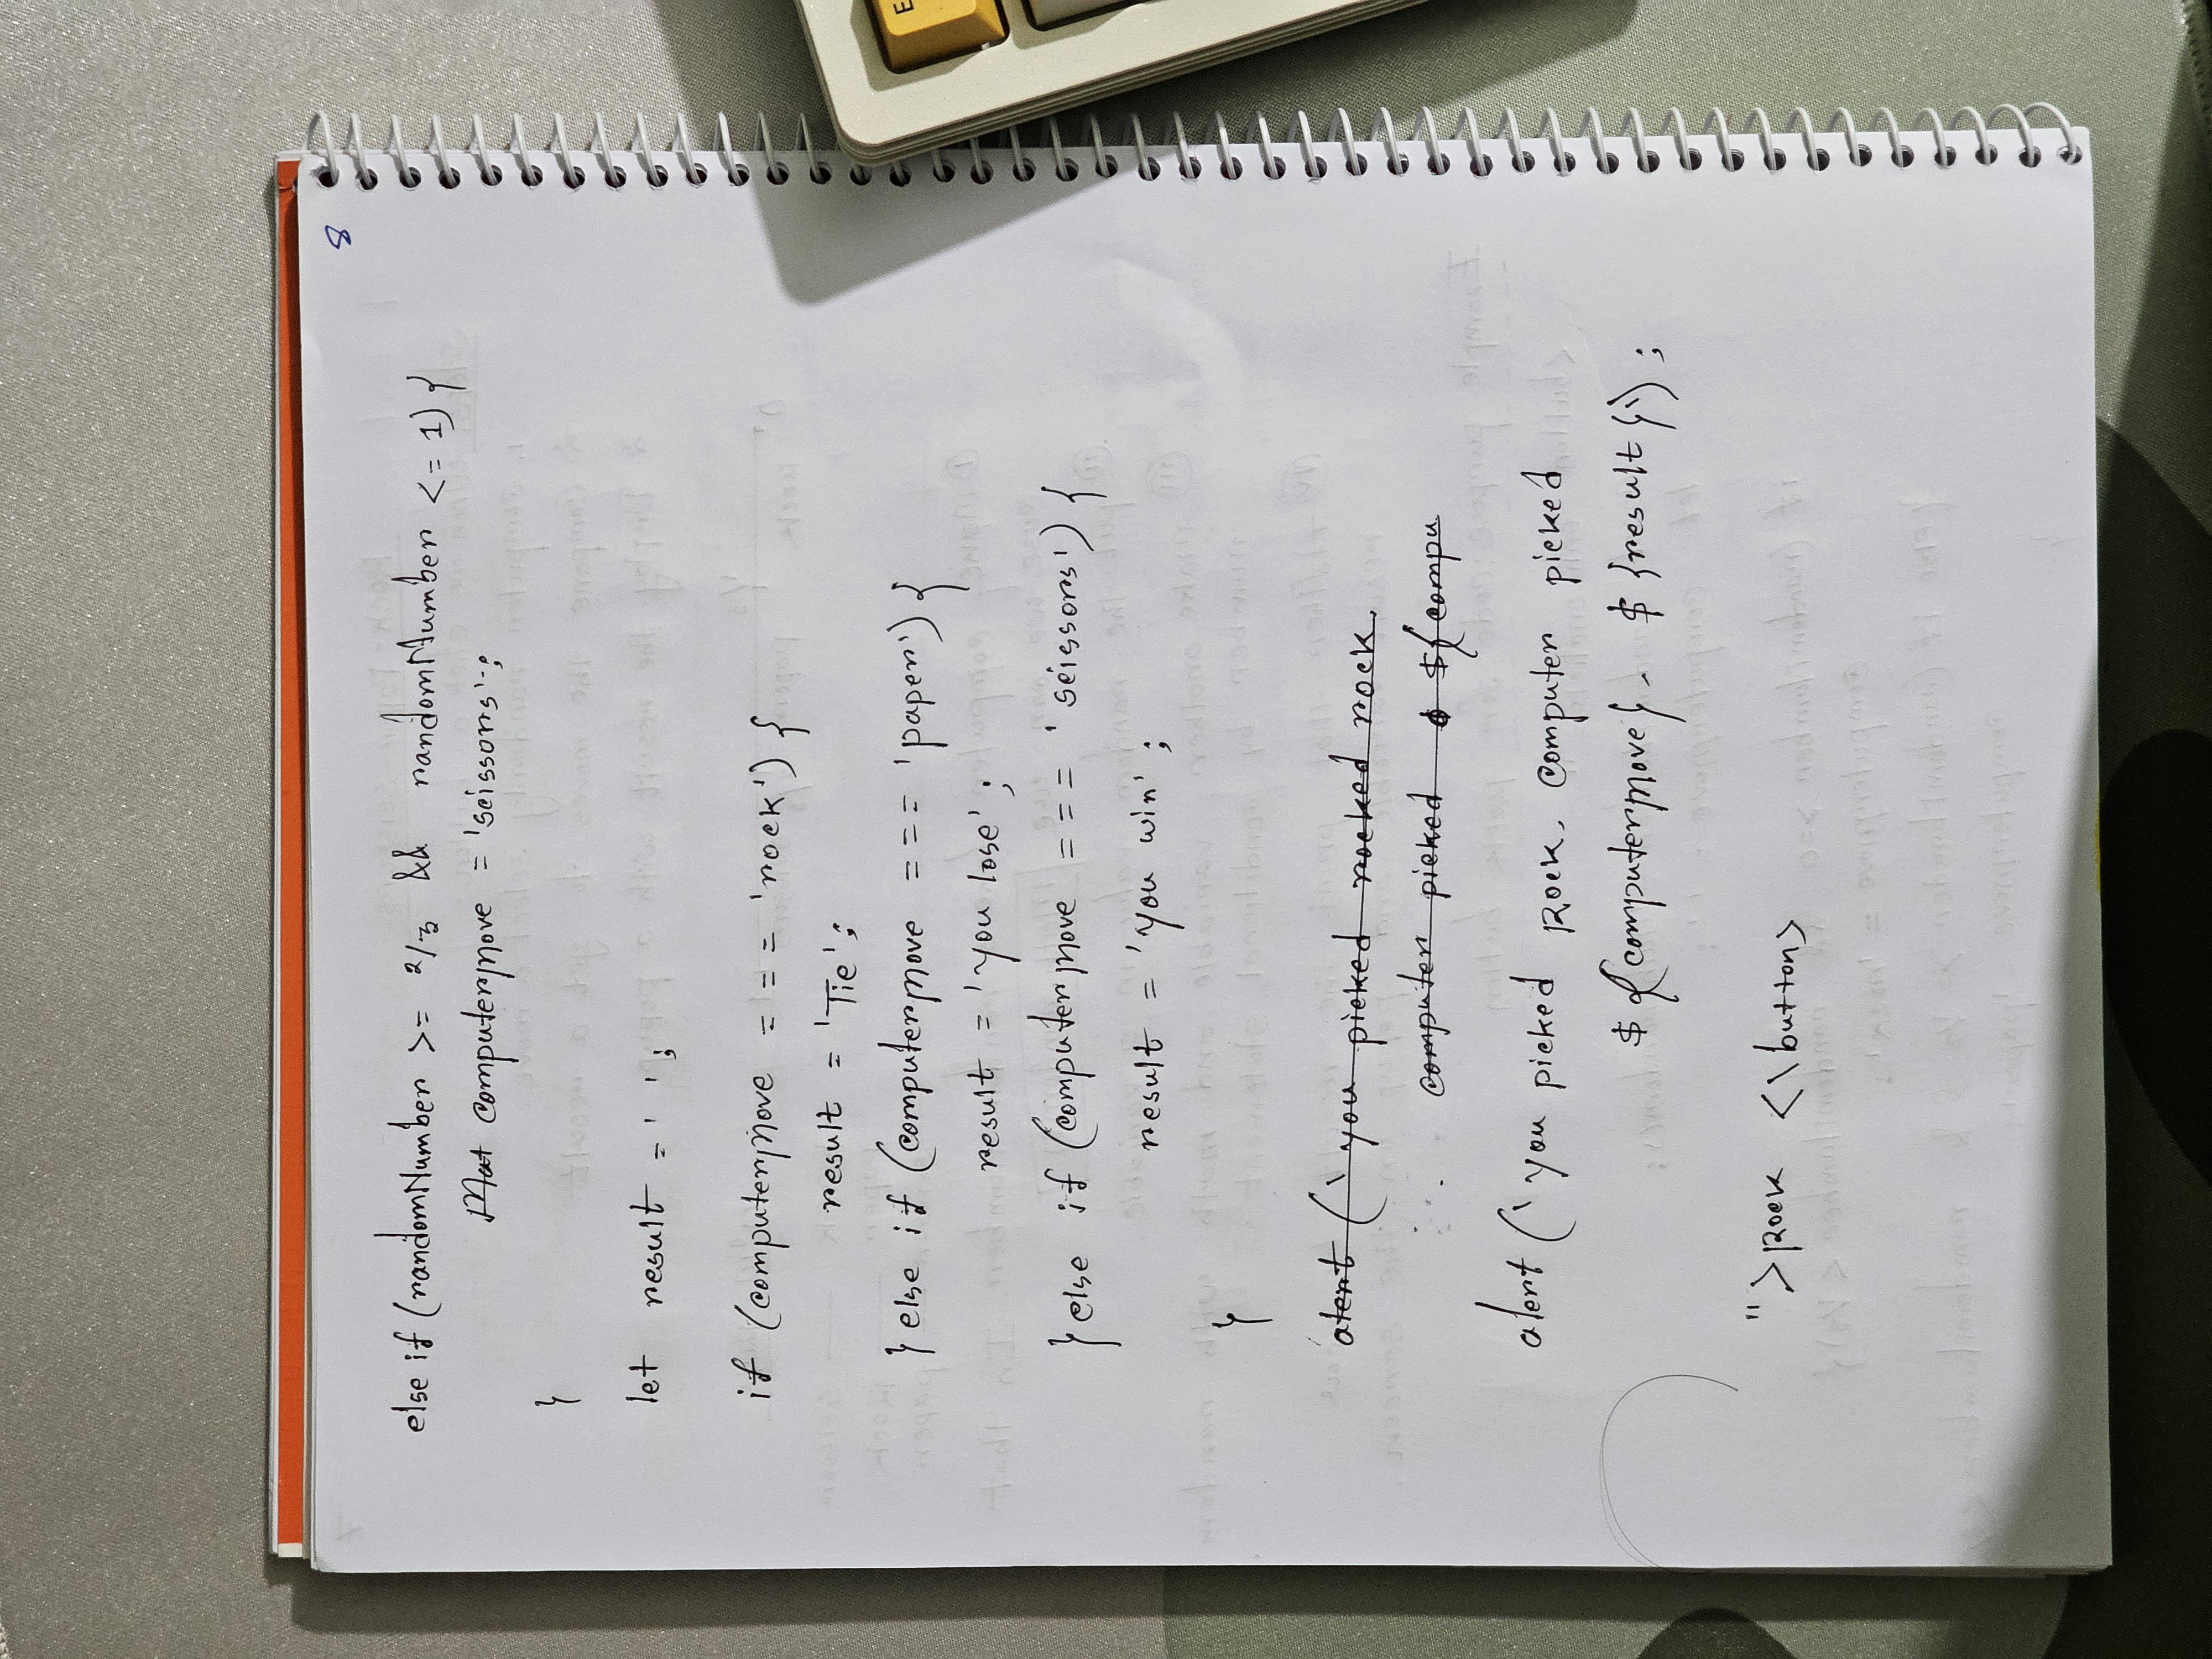 8
else if (randomNumber >= 2/3 && randomNumber <= 1) {
computerMove = 'scissors';
}
let result = ' ';
if (computerMove === 'rock') {
result = 'Tie';
} else if (computerMove === 'paper') {
result = 'you lose';
} else if (computerMove === 'scissors') {
result = 'you win';
}
alert (` you picked rocked rock.
computer picked ${compu
alert (` you picked Rock. computer picked
${computerMove}. ${result}`);
">Rock <\button>
E